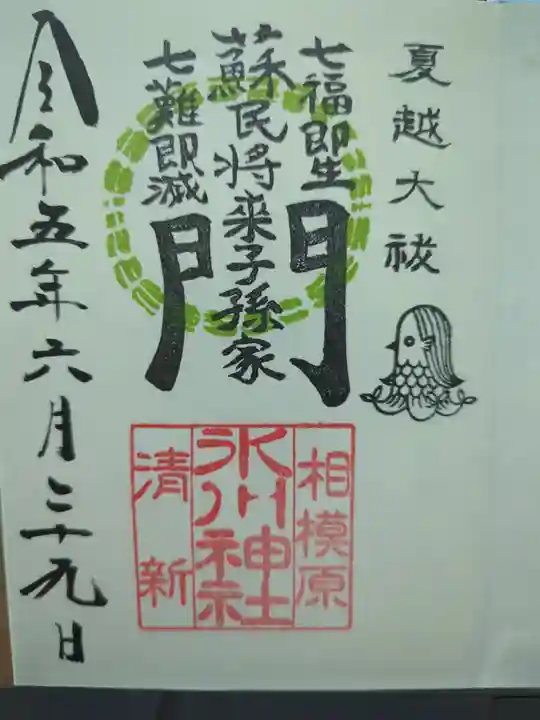 夏越大祓
七福即生
蘇民将来子孫家
七難即滅
門
相模原
氷川神社
清新
令和五年六月二十九日